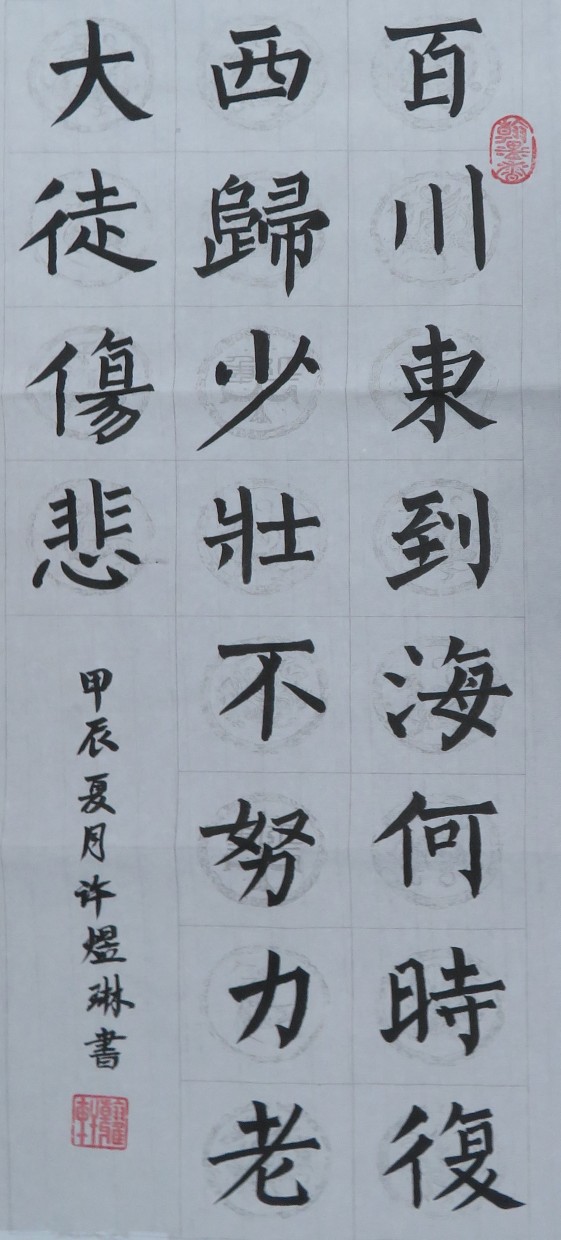 百川東到海何時復
西歸少壯不努力老
大徒傷悲
甲辰夏月许煜琳書
翰墨香